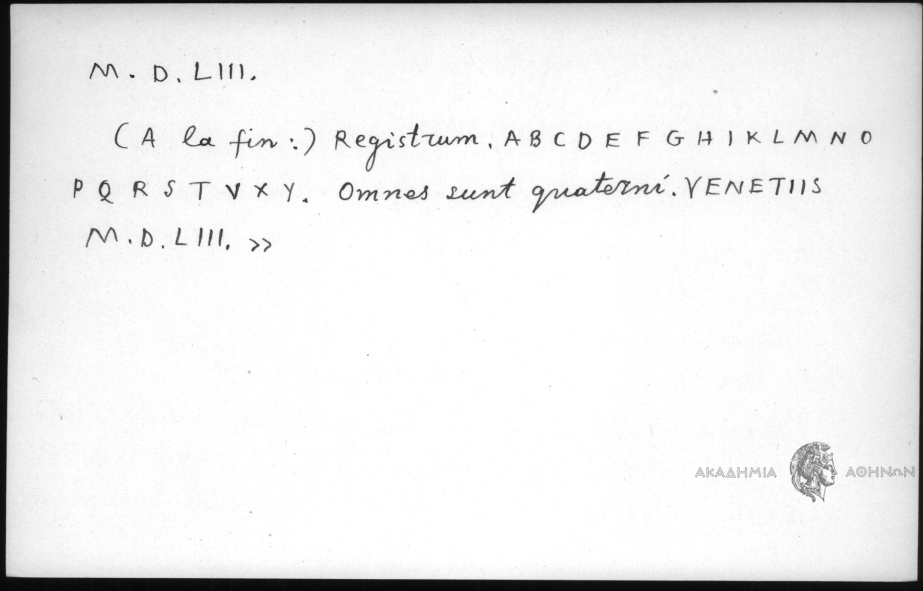 M. D. LIII.
(A la fin:) Registrum. A B C D E F G H I K L M N O
P Q R S T V X Y. Omnes sunt quaterni. VENETIIS
M. D. LIII. »
ΑΚΑΔΗΜΙΑ ΑΘΗΝΩΝ